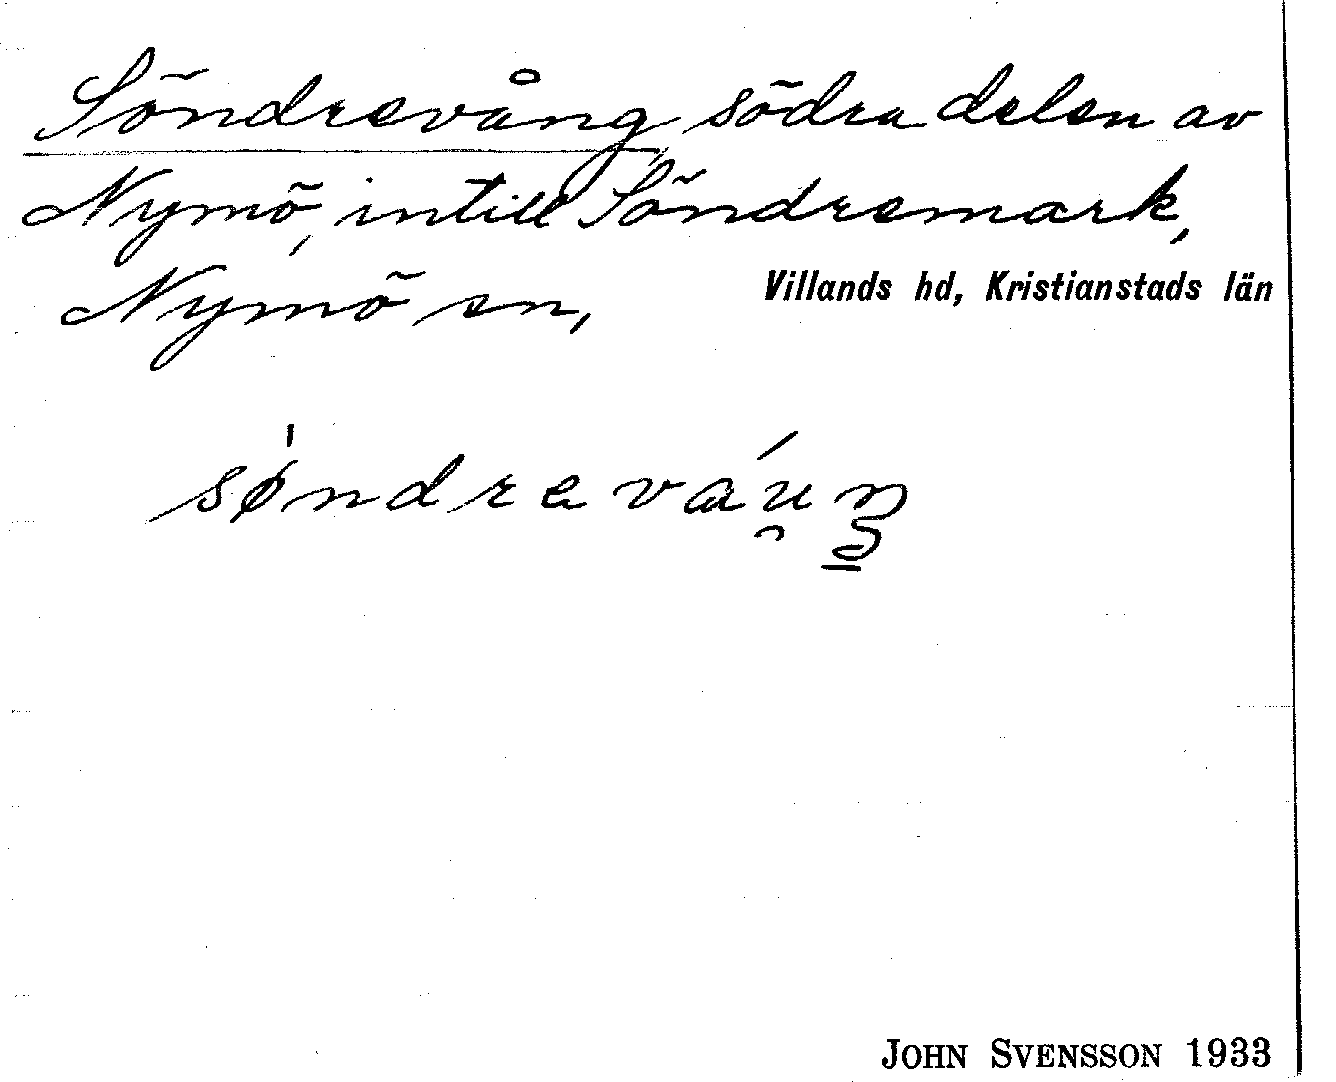 Söndrevång södra delen av
Nymö, intill Söndremark,
Nymö sn, Villands hd, Kristianstads län
sø̍ndrevaú̯ŋ
JOHN SVENSSON 1933